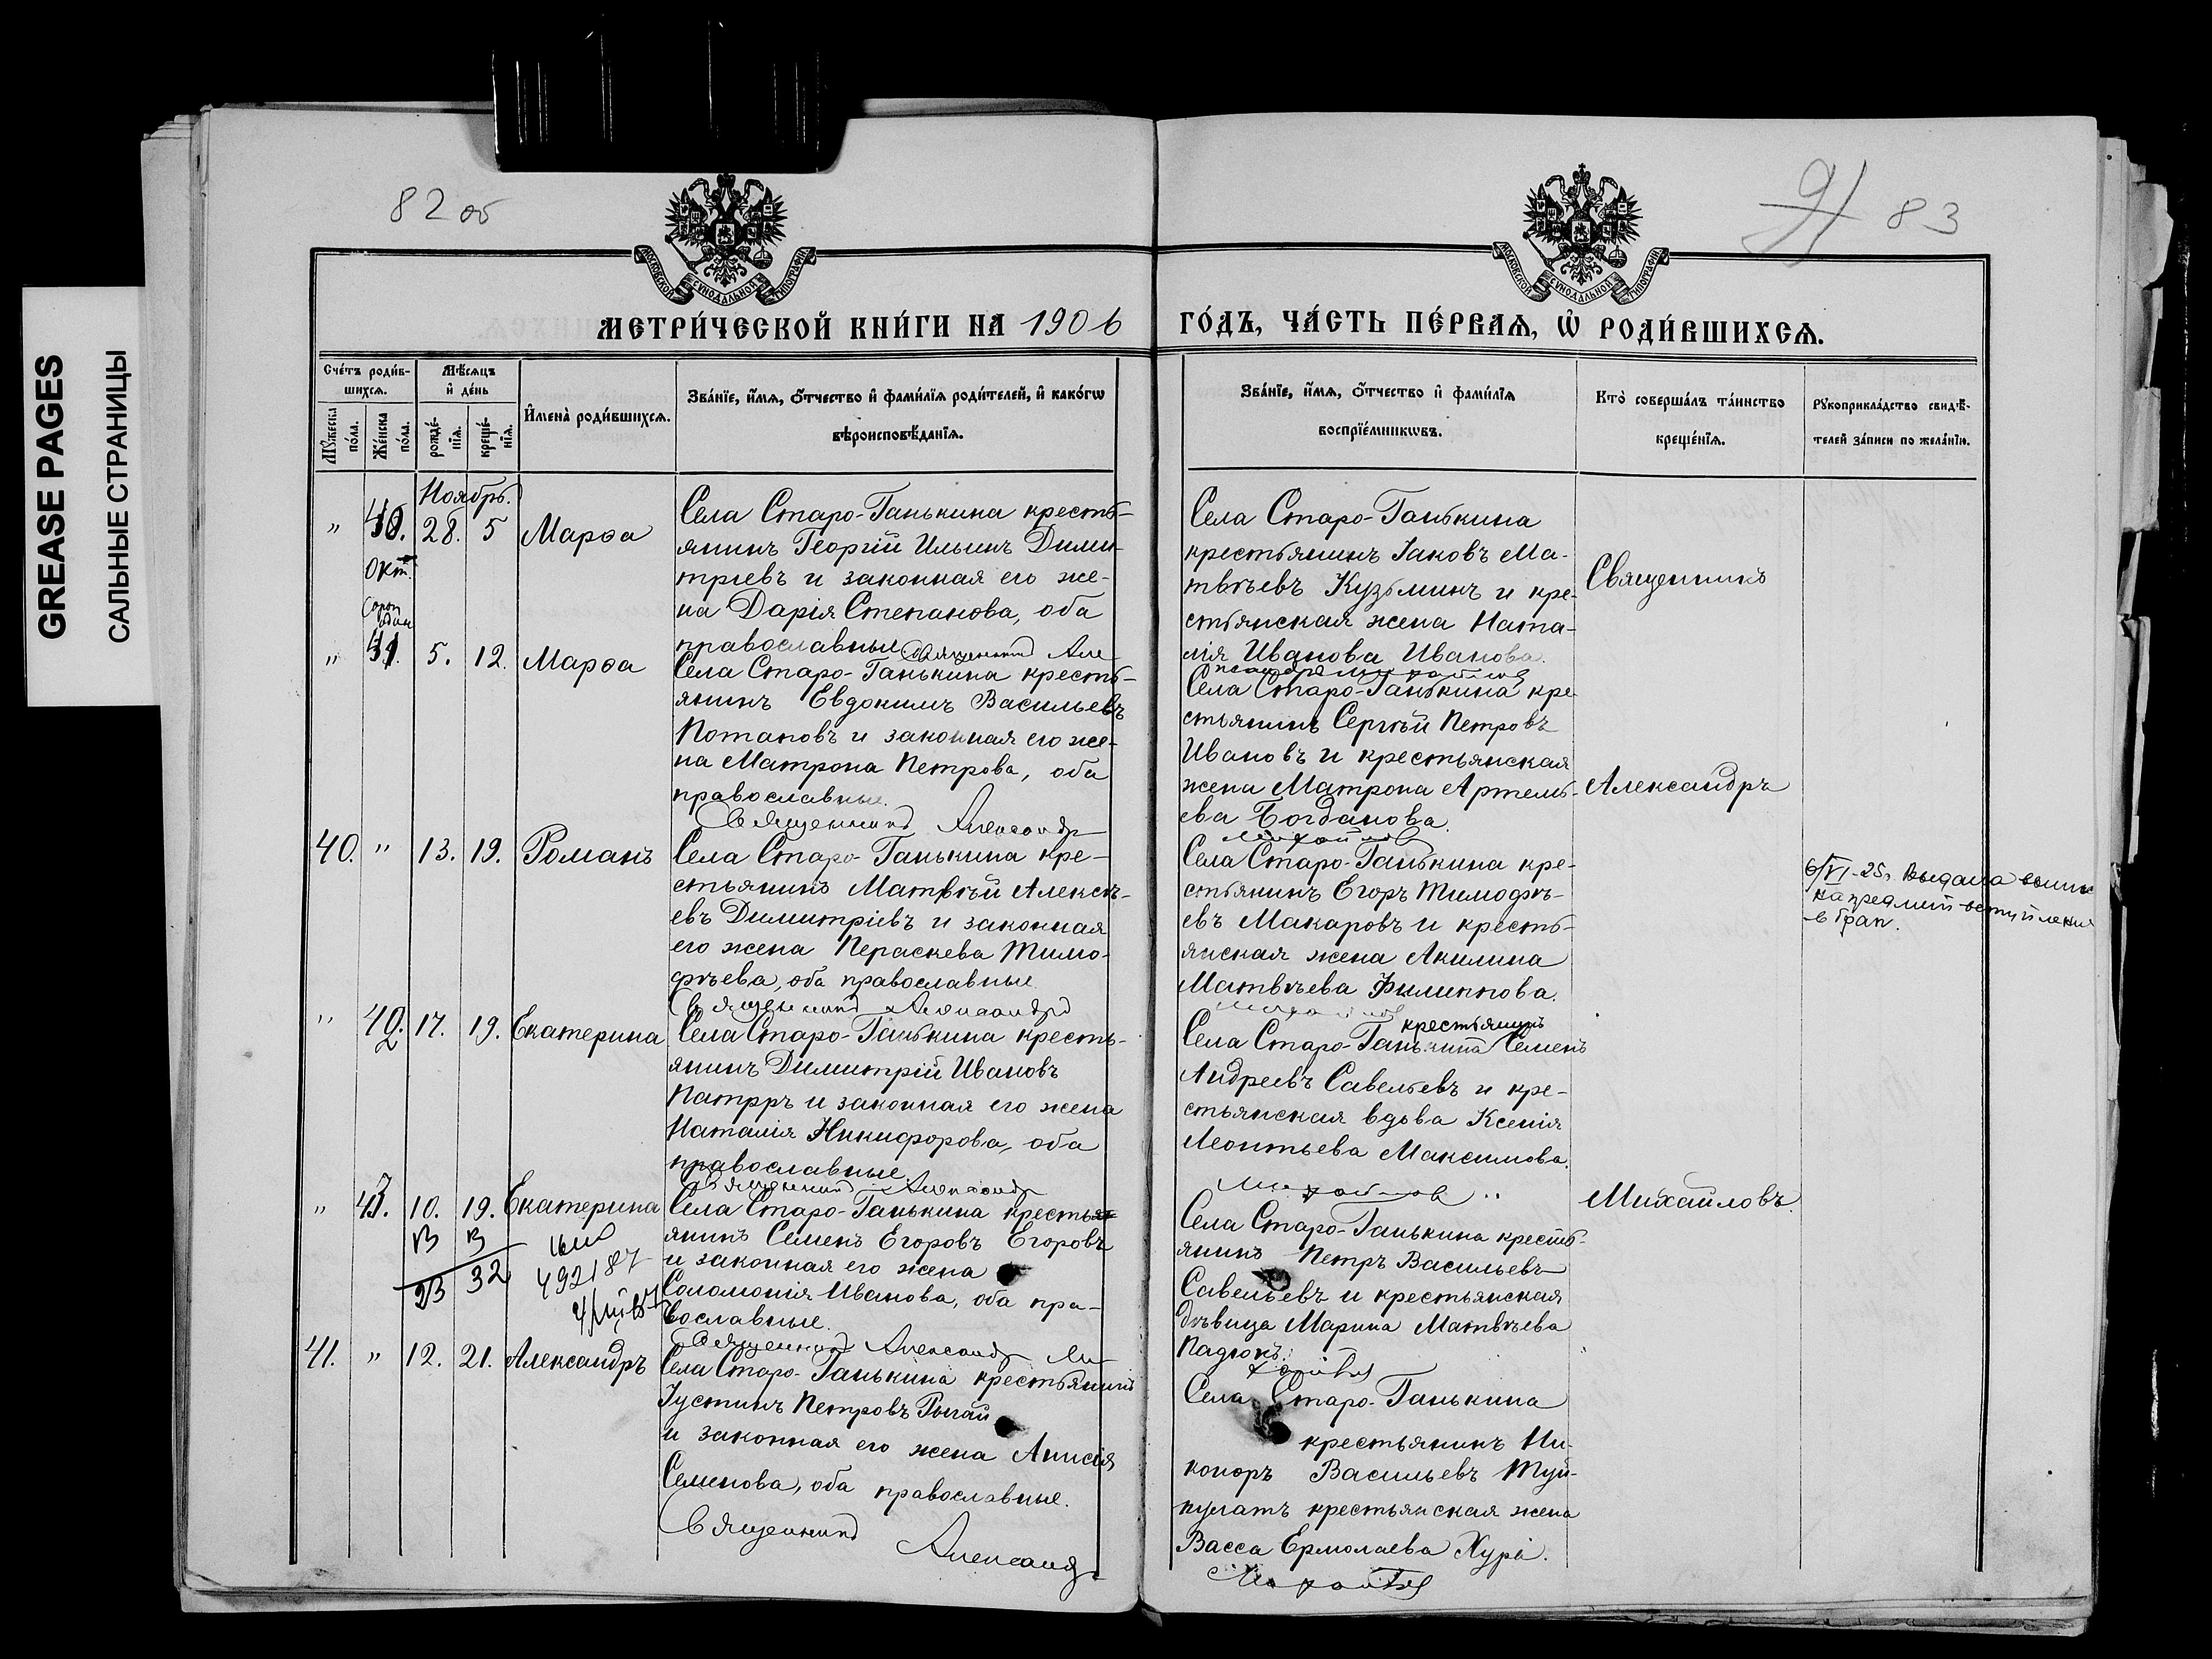 GREASE PAGES
САЛЬНЫЕ СТРАНИЦЫ
82 об
91 83
МОСКОВСКОЙ СѴНОДАЛЬНОЙ ТИПОГРАФІИ
МОСКОВСКОЙ СѴНОДАЛЬНОЙ ТИПОГРАФІИ
МЕТРИ́ЧЕСКОЙ КНИ́ГИ НА 1906
ГО́ДЪ, ЧА́СТЬ ПЕ́РВАѦ, Ѡ҆ РОДИ́ВШИХСѦ.
Сче́тъ роди́в-
шихсѧ.
Мꙋ́жеска
по́ла.
Же́нска
по́ла.
Мѣ́сѧцъ
и҆ де́нь
рожде́-
нїѧ.
креще́-
нїѧ.
И҆мена̀ роди́вшихсѧ.
Зва́нїе, и҆́мѧ, ѻ҆́тчество и҆ фами́лїѧ роди́телей, и҆ како́гѡ
вѣроисповѣ́данїѧ.
Зва́нїе, и҆́мѧ, ѻ҆́тчество и҆ фами́лїѧ
воспрїе́мникѡвъ.
Кто̀ соверша́лъ та́инство
креще́нїѧ.
Рꙋкоприкла́дство свидѣ́-
телей за́писи по жела́нїю.
Ноябрь.
" 40. 28. 5 Марѳа
Окт.
Села Старо-Ганькина кресть-
янинъ Георгій Ильинъ Дими-
тріевъ и законная его же-
на Дарія Степанова, оба
православные Священникъ Але-
Села Старо-Ганькина
крестьянинъ Іаковъ Ма-
твѣевъ Кузьминъ и кре-
стьянская жена Ната-
лія Иванова Иванова.
Священникъ
" 41. 5. 12. Марѳа
Села Старо-Ганькина кресть-
янинъ Евдокимъ Васильевъ
Потаповъ и законная его же-
на Матрона Петрова, оба
православные.
Священникъ Александр
Села Старо-Ганькина кре-
стьянинъ Сергѣй Петровъ
Ивановъ и крестьянская
жена Матрона Артемь-
ева Богданова.
Михайлов
Александръ
40. " 13. 19. Романъ
Села Старо-Ганькина кре-
стьянинъ Матвѣй Алексѣ-
евъ Димитріевъ и законная
его жена Пераскева Тимо-
фѣева, оба православные
Священникъ Александръ
Села Старо-Ганькина кре-
стьянинъ Егоръ Тимофѣ-
евъ Макаровъ и кресть-
янская жена Акилина
Матвѣева Филиппова.
Михайлов
6/VI-25г. Выдана
вступления
в брак.
" 42. 17. 19. Екатерина
Села Старо-Ганькина кресть-
янинъ Димитрій Ивановъ
Патрръ и законная его жена
Наталія Никифорова, оба
православные.
Священникъ Александр
крестьянинъ
Села Старо-Ганькина Семенъ
Андреевъ Савельевъ и кре-
стьянская вдова Ксенія
Леонтьева Максимова.
Михайлов
" 43. 10. 19. Екатерина
492187
32
Села Старо-Ганькина кресть
янинъ Семенъ Егоровъ Егоровъ
и законная его жена
Соломонія Иванова, оба пра-
вославные.
Священникъ Александр Ми-
Села Старо-Ганькина кресть-
янинъ Петръ Васильевъ
Савельевъ и крестьянская
дѣвица Марина Матвѣева
Падюкъ.
хайлов
Михайловъ.
41. " 12. 21. Александръ
Села Старо-Ганькина крестьянинъ
Іустинъ Петровъ Рыгай
и законная его жена Анисія
Семенова, оба православные.
Священникъ
Александр
Села Старо-Ганькина
крестьянинъ Ни-
коноръ Васильевъ Туй-
пулатъ крестьянская жена
Васса Ермолаева Хурі.
Михайлов